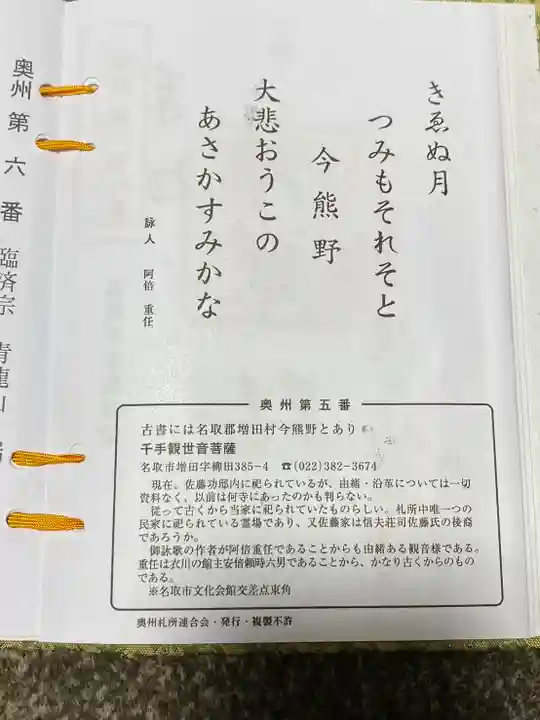 きゑぬ月
つみもそれそと
今熊野
大悲おうこの
あさかすみかな
詠人 阿倍 重任
奥州第五番
古書には名取郡増田村今熊野とあり
千手観世音菩薩
名取市増田字柳田385-4 ☎(022)382-3674
現在、佐藤功邸内に祀られているが、由緒・沿革については一切
資料なく、以前は何寺にあったのかも判らない。
従って古くから当家に祀られていたものらしい。札所中唯一つの
民家に祀られている霊場であり、又佐藤家は信夫荘司佐藤氏の後裔
であろうか。
御詠歌の作者が阿倍重任であることからも由緒ある観音様である。
重任は衣川の館主安倍頼時六男であることから、かなり古くからのもの
である。
※名取市文化会館交差点東角
奥州札所連合会・発行・複製不許
奥州第六番 臨済宗 青龍山